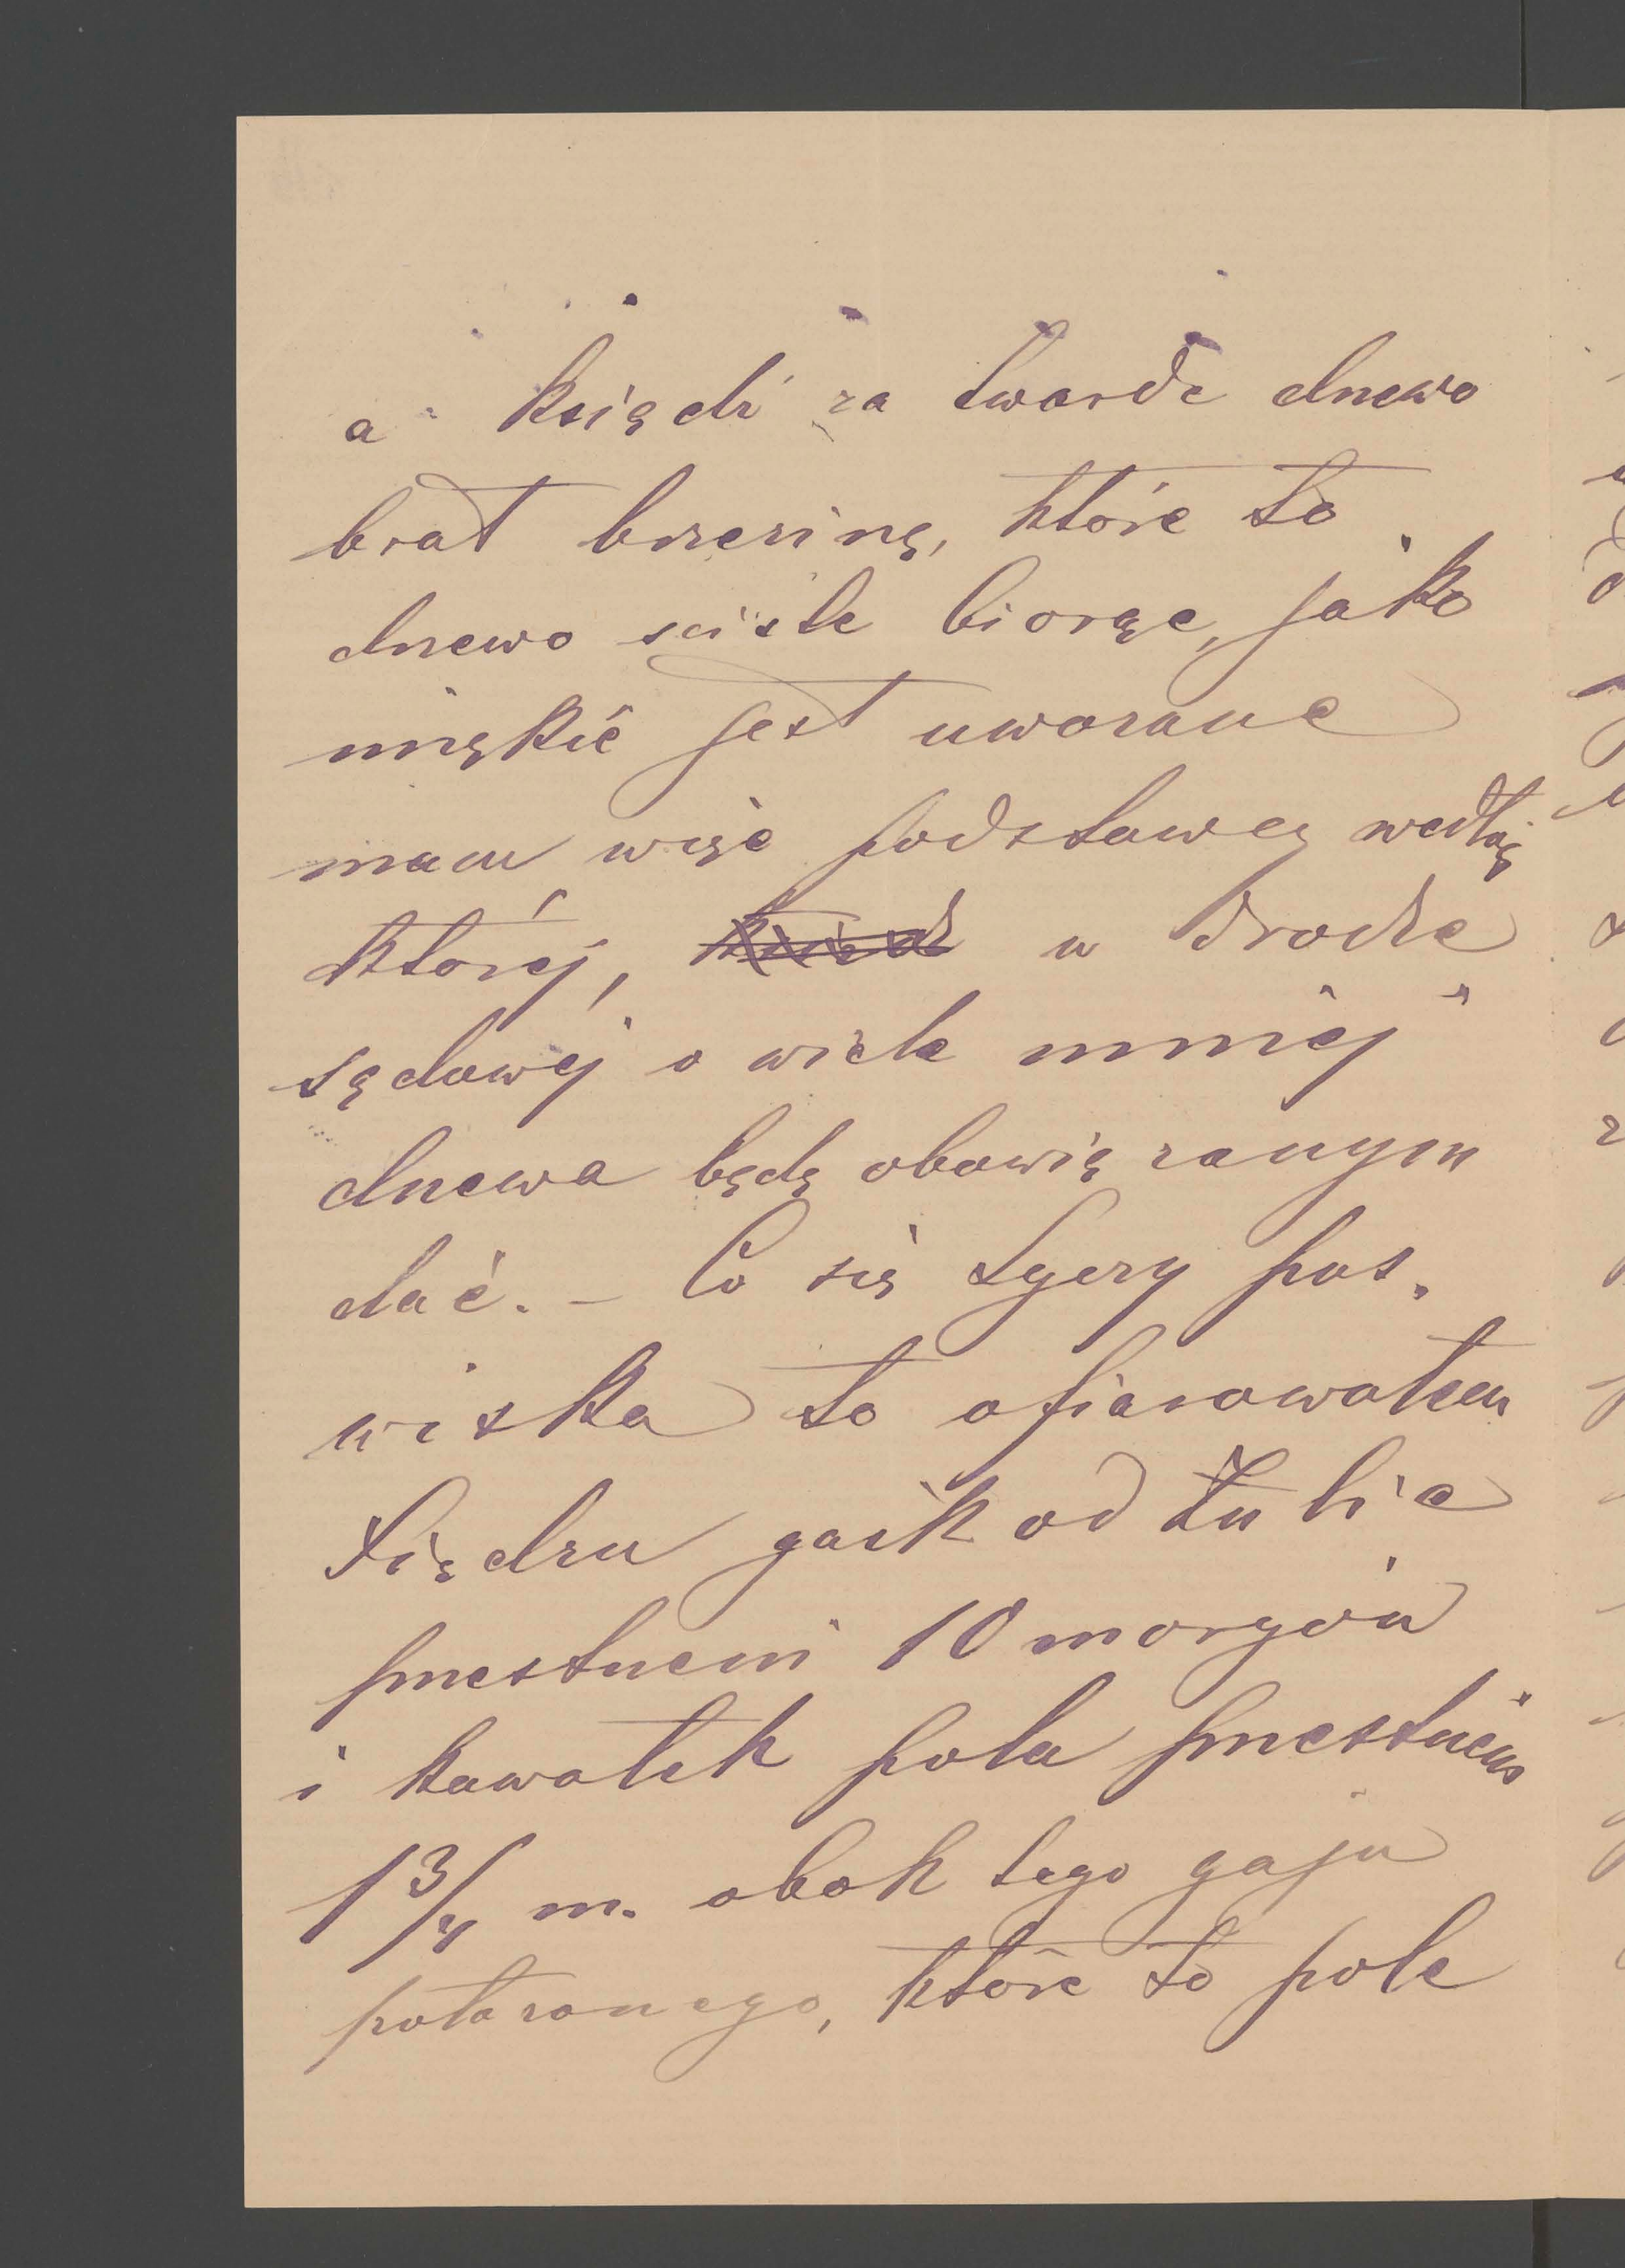 a ksiądz za twarde drzewo
brał brzezinę, które to
drzewo sciśle biorąc, jako
miękié jest uważane
mam więc podstawę według
której, w drodze
sądowéj o wiele mniéj
drzewa będę obowiązanym
dać. - Co się tyczy pas.
wiska to ofiarowałem
księdzu gaik od
przestrzeni 10 morgów
i kawałek pola przestrzeni
1 3/4 m. obok tego gaju
położonego, które to pole